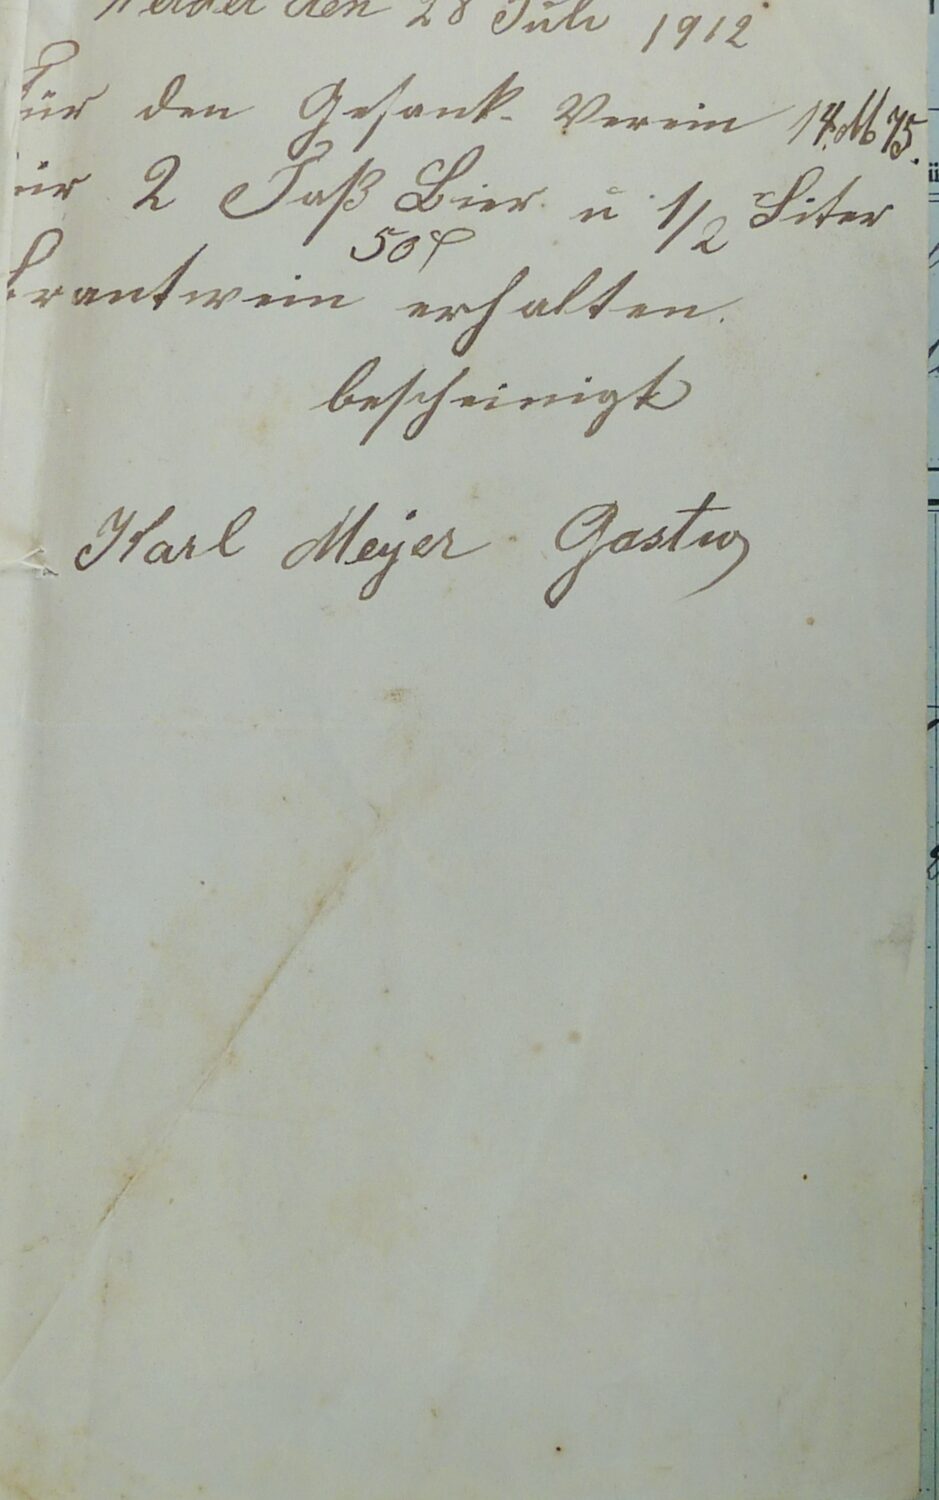 den 28 Juli 1912
Für den Gesank-Verein 14.M 75.
für 2 Faß Bier u 1/2 Liter
50₰
Brantwein erhalten.
bescheinigt
Karl Meyer Gastw